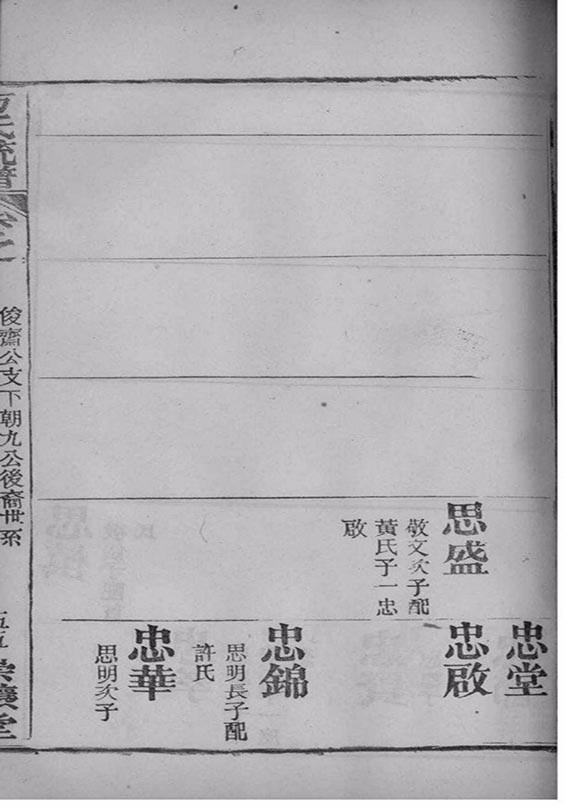 思盛
敬文次子配
黃氏子一忠
啟
忠堂
忠啟
忠錦
思明長子配
許氏
忠華
思明次子
俊齋公支下朝九公後裔世系